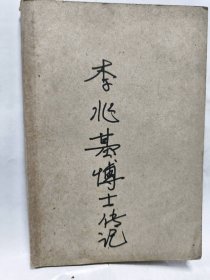 李兆基博士传记